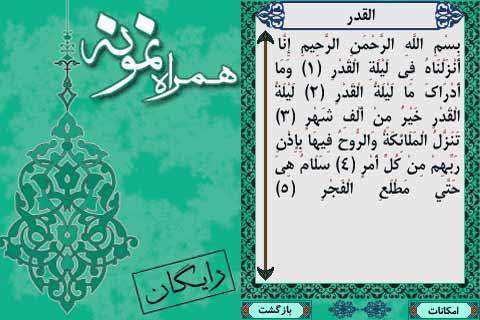 همراه نمونه
رایگان
القدر
بِسْمِ اللَّهِ الرَّحْمَنِ الرَّحِيمِ إِنَّا
أَنْزَلْنَاهُ فِي لَيْلَةِ الْقَدْرِ (١) وَمَا
أَدْرَاكَ مَا لَيْلَةُ الْقَدْرِ (٢) لَيْلَةُ
الْقَدْرِ خَيْرٌ مِنْ أَلْفِ شَهْرٍ (٣)
تَنَزَّلُ الْمَلَائِكَةُ وَالرُّوحُ فِيهَا بِإِذْنِ
رَبِّهِمْ مِنْ كُلِّ أَمْرٍ (٤) سَلَامٌ هِيَ
حَتَّى مَطْلَعِ الْفَجْرِ (٥)
امکانات
بازگشت